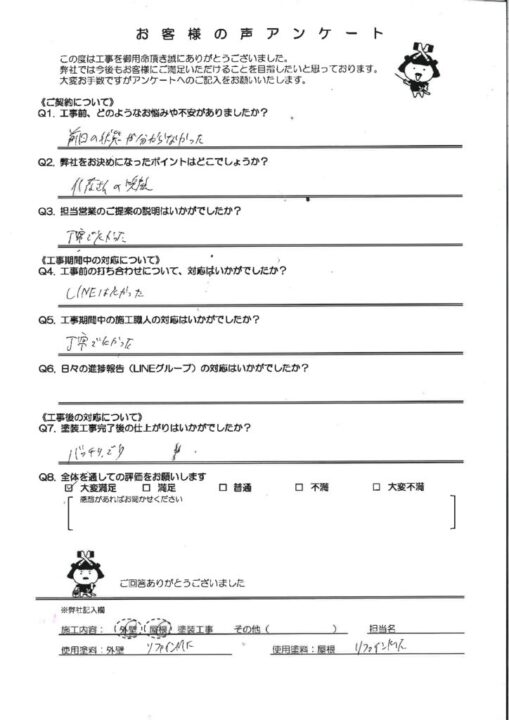 お客様の声アンケート
この度は工事を御用命頂き誠にありがとうございました。
弊社では今後もお客様にご満足いただけることを目指したいと思っております。
大変お手数ですがアンケートへのご記入をお願いいたします。
《ご契約について》
Q1. 工事前、どのようなお悩みや不安がありましたか？
前日の状態が分からなかった
Q2. 弊社をお決めになったポイントはどこでしょうか？
さんの
Q3. 担当営業のご提案の説明はいかがでしたか？
丁寧でした
《工事期間中の対応について》
Q4. 工事前の打ち合わせについて、対応はいかがでしたか？
LINEは
Q5. 工事期間中の施工職人の対応はいかがでしたか？
丁寧でよかった
Q6. 日々の進捗報告（LINEグループ）の対応はいかがでしたか？
《工事後の対応について》
Q7. 塗装工事完了後の仕上がりはいかがでしたか？
バッチリです
Q8. 全体を通しての評価をお願いします
☑ 大変満足 □ 満足 □ 普通 □ 不満 □ 大変不満
感想があればお聞かせください
ご回答ありがとうございました
※弊社記入欄
施工内容：（外壁）（屋根）塗装工事 その他（ ） 担当名
使用塗料：外壁 リファイン 使用塗料：屋根 リファイン